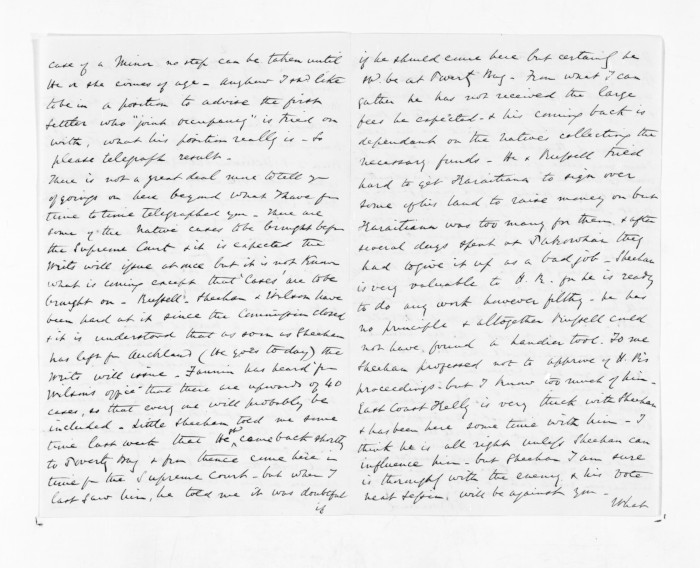 case of a Minor no step can be taken until
He or she comes of age - Anyhow I shd like
to be in a position to advise the first
settler who "joint occupancy" is tried on
with, what his position really is - So
please telegraph result -
There is not a great deal more to tell you
of goings on here beyond what I have fm
time to time telegraphed you - There are
some of the Native cases to be brought before
the Supreme Court & it is expected the
Writs will issue at once but it is not known
what is coming except that "Cases" are to be
brought on - Russell - Sheehan & Wilson have
been hard at it since the Commission closed
& it is understood that as soon as Sheehan
has left for Auckland (He goes to day) the
Writs will issue - Fannin has heard fm
Wilsons office that there are upwards of 40
cases, so that every one will probably be
included - Little Sheehan told me some
time last week that He wd come back shortly
to Poverty Bay & from thence come here in
time for the Supreme Court - but when I
last saw him, he told me it was doubtful
if
if he should come here but certainly he
wd be at Poverty Bay - From what I can
gather he has not received the large
fees he expected - & his coming back is
dependant on the Natives collecting the
necessary funds - He & Russell tried
hard to get Karaitiana to sign over
some of his land to raise money on but
Karaitiana was too many for them & after
several days spent at Pakowhai they
had to give it up as a bad job - Sheehan
is very valuable to H. R. for he is ready
to do any work however filthy - he has
no principle & altogether Russell could
not have found a handier tool. To me
Sheehan professed not to approve of H. R's
proceedings - but I know too much of him -
East Coast Kelly is very thick with Sheehan
& has been here some time with him - I
think he is all right unless Sheehan can
influence him - but Sheehan I am sure
is thoroughly with the enemy & his vote
next Session, will be against you -
What